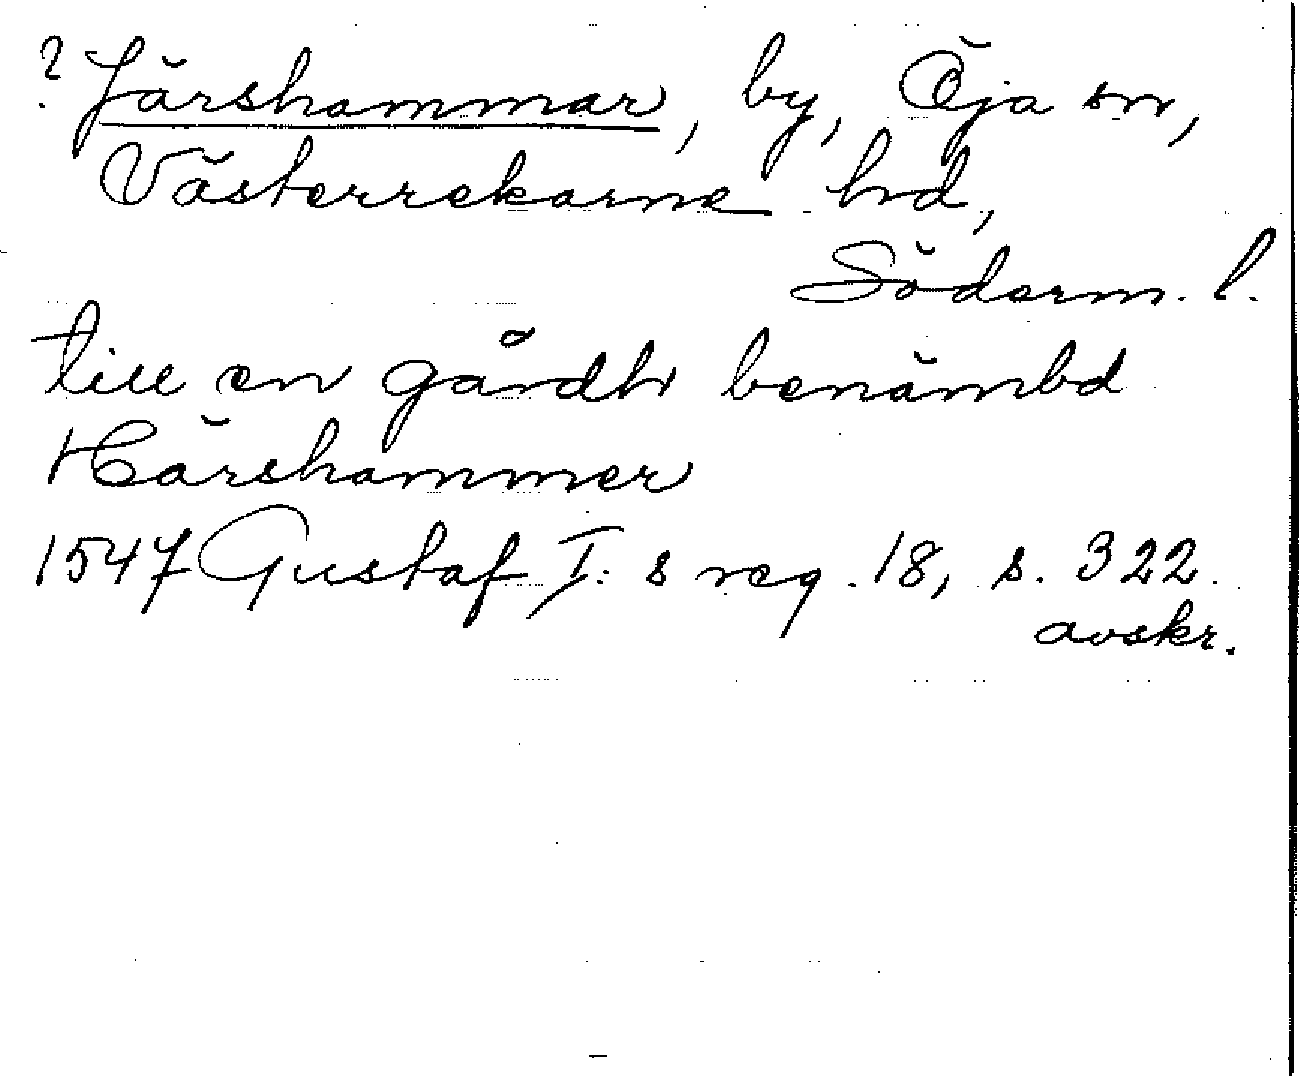 ? Järshammar, by, Öja sn,
Västerrekarne hd,
Söderm. l.
till en gårdh benämbd
Härshammer
1547 Gustaf I:s reg. 18, s. 322.
avskr.